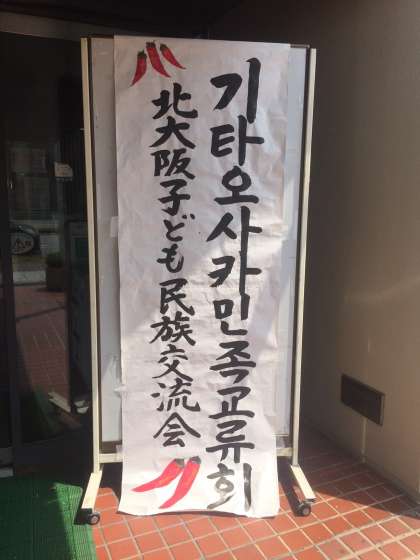 기타오사카민족교류회
北大阪子ども民族交流会